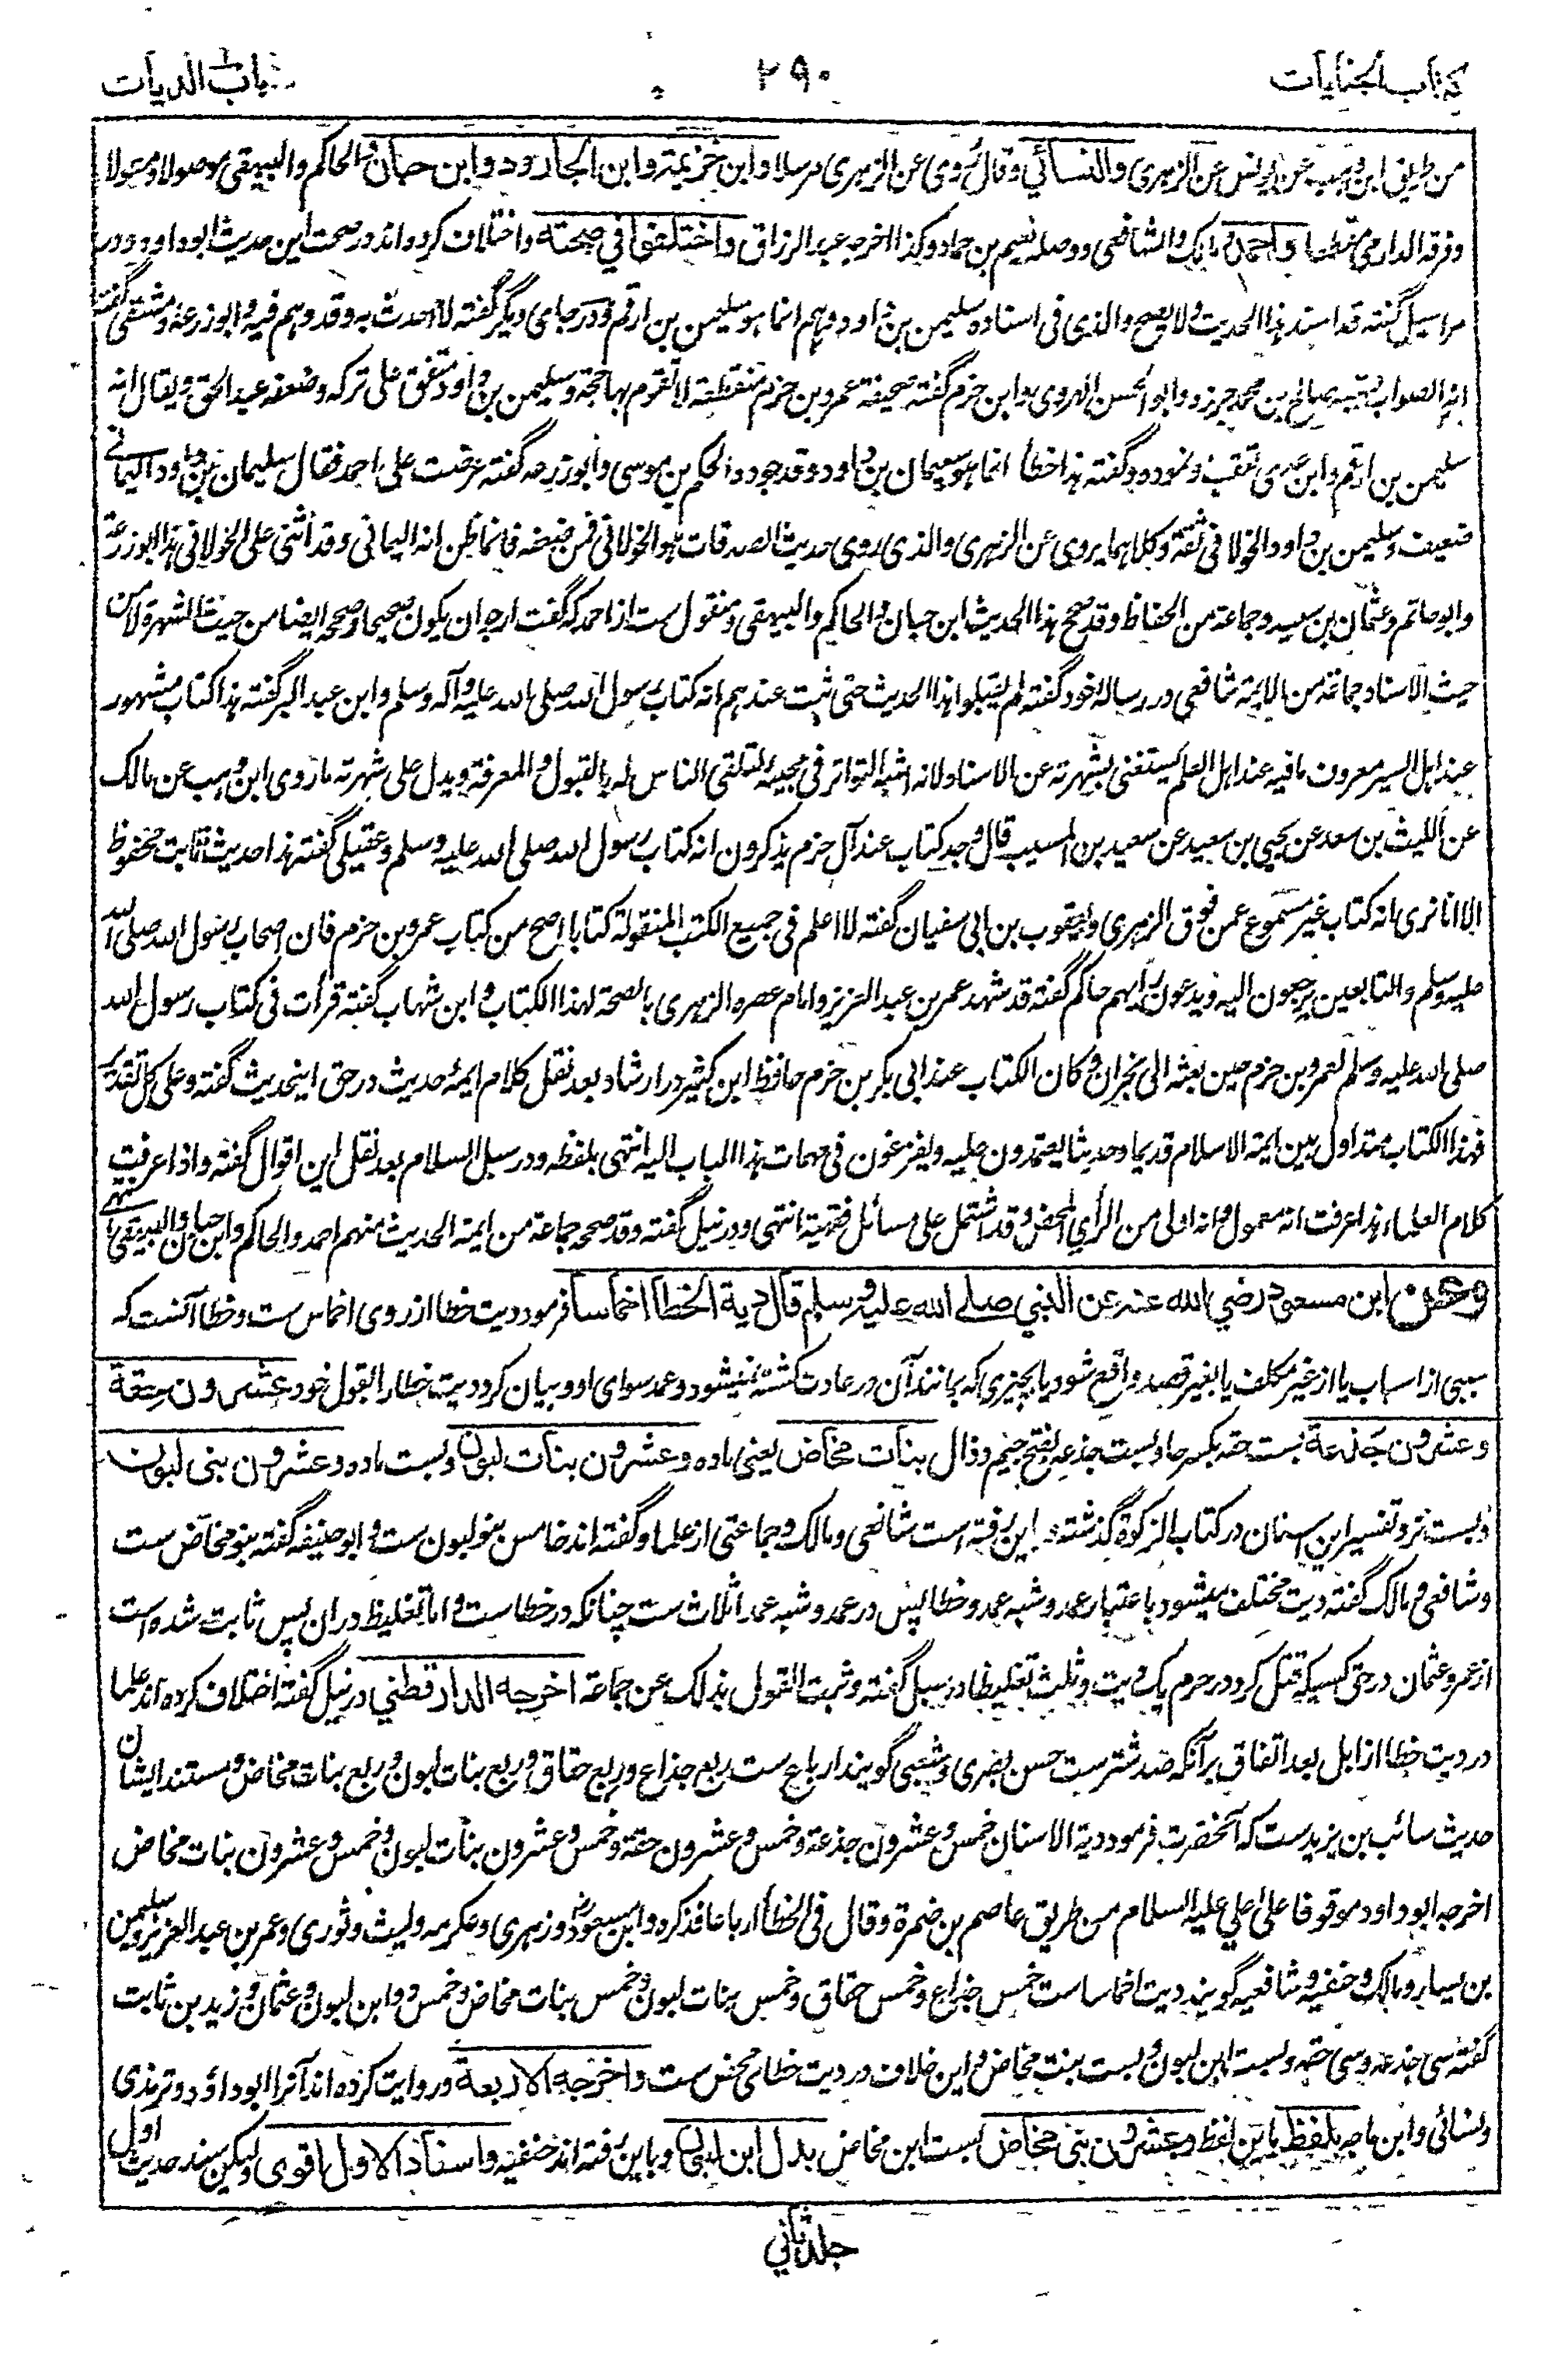 کتاب الجنایات
۲۹۰
باب الدیات
من طریق ابن وهب عن یونس عن الزهری والنسائی وقال روی عن الزهری مرسلا وابن خزیمة وابن الجارود وابن حبان والحاکم والبیهقی موصولا ومطولا
وفرقه الدارمی مقطعا واحمد مالک والشافعی ووصله نعیم بن حماد وکذا اخرجه عبد الرزاق واختلفوا فی صحته واختلاف کرده اند در صحت این حدیث ابوداود در
مراسیل گفته قد اسند هذا الحدیث ولا یصح والذی فی اسناده سلیمن بن داود وهم انما هو سلیمن بن ارقم ودر جای دیگر گفته لا احدث به وقد وهم فیه وابو زرعه دمشقی گفته
انه الصواب وتبعه صالح بن محمد جزره وابو الحسن الهروی وابن حزم گفته صحیفة عمرو بن حزم منقطعة لا تقوم بها حجة وسلیمن بن داود متفق علی ترکه وضعفه عبد الحق ویقال انه
سلیمن بن ارقم وابن عدی تعقب نموده وگفته هذا خطأ انما هو سلیمان بن داود وقد جوده الحکم بن موسی وابو زرعه گفته عرضت علی احمد فقال سلیمان بن داود الیمانی
ضعیف وسلیمن بن داود الخولانی ثقة وکلاهما یروی عن الزهری والذی روی حدیث الصدقات هو الخولانی فمن ضعفه فانما ظن انه الیمانی وقد أثنی علی الخولانی هذا ابو زرعة
وابو حاتم وعثمان بن سعید وجماعة من الحفاظ وقد صحح هذا الحدیث ابن حبان والحاکم والبیهقی ومنقول ست از احمد که گفت ارجو ان یکون صحیحا وصححه ایضا من حیث الشهرة لا من
حیث الاسناد جماعة من الایمة شافعی در رساله خود گفته لم یقبلوا هذا الحدیث حتی ثبت عندهم انه کتاب رسول الله صلی الله علیه وآله وسلم وابن عبد البر گفته هذا کتاب مشهور
عند اهل السیر معروف ما فیه عند اهل العلم یستغنی بشهرته عن الاسناد لانه اشبه التواتر فی مجیئه لتلقی الناس له بالقبول والمعرفة ویدل علی شهرته ما روی ابن وهب عن مالک
عن اللیث بن سعد عن یحیی بن سعید عن سعید بن المسیب قال وجد کتاب عند آل حزم یذکرون انه کتاب رسول الله صلی الله علیه وسلم وعقیلی گفته هذا حدیث ثابت محفوظ
الا انا نری انه کتاب غیر مسموع عمن فوق الزهری ویعقوب بن ابی سفیان گفته لا اعلم فی جمیع الکتب المنقولة کتابا اصح من کتاب عمرو بن حزم فان اصحاب رسول الله صلی الله
علیه وسلم والتابعین یرجعون الیه ویدعون رایهم حاکم گفته قد شهد عمر بن عبد العزیز وامام عصره الزهری بالصحة لهذا الکتاب وابن شهاب گفته قرأت فی کتاب رسول الله
صلی الله علیه وسلم لعمرو بن حزم حین بعثه الی نجران وکان الکتاب عند ابی بکر بن حزم حافظ ابن کثیر در ارشاد بعد نقل کلام ایمهٔ حدیث در حق اینحدیث گفته وعلی کل تقدیر
فهذا الکتاب متداول بین ایمة الاسلام قدیما وحدیثا یعتمدون علیه ویفزعون فی مهمات هذا الباب الیه انتهی بلفظه ودر سبل السلام بعد نقل این اقوال گفته واذا عرفت
کلام العلماء هذا عرفت انه معمول به وانه اولی من الرأی المحض وقد اشتمل علی مسائل فقهیة انتهی ودر نیل گفته وقد صححه جماعة من ایمة الحدیث منهم احمد والحاکم وابن حبان والبیهقی انتهی
وعن ابن مسعود رضی الله عنه عن النبی صلی الله علیه وسلم قال دیة الخطأ اخماسا فرمود دیت خطا از روی اخماس ست وخطا آنست که
سببی از اسباب یا از غیر مکلف یا بغیر قصد واقع شود یا بچیزی که بمانند آن در عادت کشته نمیشود وعمد سوای او وبیان کرد دیت خطا را بقول خود عشرون حقة
وعشرون جذعة بست حقه بکسر حا وبست جذعه بفتح جیم وذال بنات مخاض یعنی ماده وعشرون بنات لبون وبست ماده وعشرون بنی لبون
وبست نر وتفسیر این اسنان در کتاب الزکوة گذشته این رفته است شافعی ومالک وجماعتی از علما وگفته اند خامس بنو لبون ست وابو حنیفه گفته بنو مخاض ست
وشافعی ومالک گفته دیت مختلف میشود باعتبار عمد وشبه عمد وخطا پس در عمد وشبه عمد اثلاث ست چنانکه در خطاست واما تغلیظ در ان پس ثابت شده است
از عمر وعثمان در حق کسیکه قتل کرد در حرم یک دیت وثلث تغلیظا در سبل گفته وثبت القول بذلک عن جماعة اخرجه الدارقطنی در نیل گفته اختلاف کرده اند علما
در دیت خطا از ابل بعد اتفاق بر آنکه صد شترست حسن بصری وشعبی گویند ارباع ست ربع جذاع وربع حقاق وربع بنات لبون وربع بنات مخاض ومستند ایشان
حدیث سائب بن یزیدست که آنحضرت فرمود دیة الانسان خمس وعشرون جذعة وخمس وعشرون حقة وخمس وعشرون بنات لبون وخمس وعشرون بنات مخاض
اخرجه ابو داود موقوفا علی علی علیه السلام من طریق عاصم بن ضمرة وقال فی الخطأ ارباعا فذکره وابن مسعود وزهری وعکرمه ولیث وثوری وعمر بن عبد العزیز وسلیمن
بن یسار ومالک وحنفیه وشافعیه گویند دیت اخماسا ست خمس جذاع وخمس حقاق وخمس بنات لبون وخمس بنات مخاض وخمس ابن لبون وعثمان وزید بن ثابت
گفته سی جذعه وسی حقه وبست ابن لبون وبست بنت مخاض واین خلاف در دیت خطای محض ست واخرجه الاربعة وروایت کرده اند آنرا ابو داود وترمذی
ونسائی وابن ماجه بلفظ باین لفظ وعشرون بنی مخاض بست ابن مخاض بدل ابن لبون وباین رفته اند حنفیه واسناد الاول اقوی ولیکن سند حدیث اول
جلد ثانی